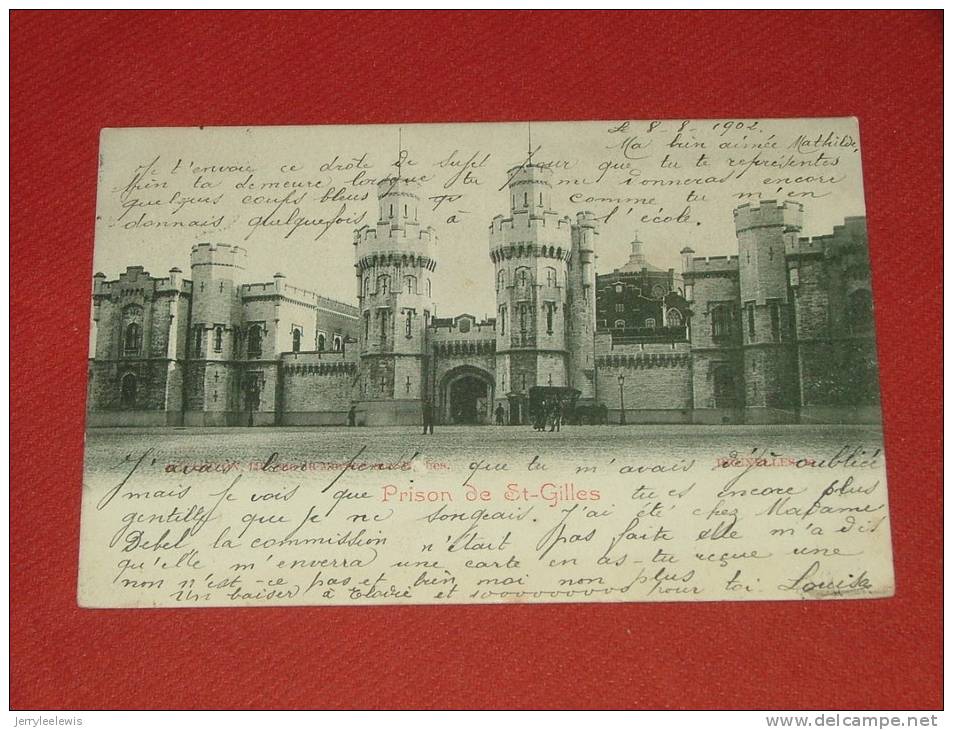 Le 8-8-1902.
Ma bien aimée Mathilde,
Je t'envoie ce drôle de sujet pour que tu te représentes
bien ta demeure lorsque tu me donneras encore
quelques coups bleus comme tu m'en
donnais quelquefois à l'école.
J'avais bien pensé que tu m'avais déjà oubliée
BRUXELLES
mais je vois que tu es encore plus
Prison de St-Gilles
gentille que je ne songeais. J'ai été chez Madame
Debel la commission n'était pas faite elle m'a dis
qu'elle m'enverra une carte en as-tu reçue une
non n'est-ce pas et bien moi non plus
Un baiser à et 1000000000 pour toi. Louise
jerryleelewis
www.delcampe.net